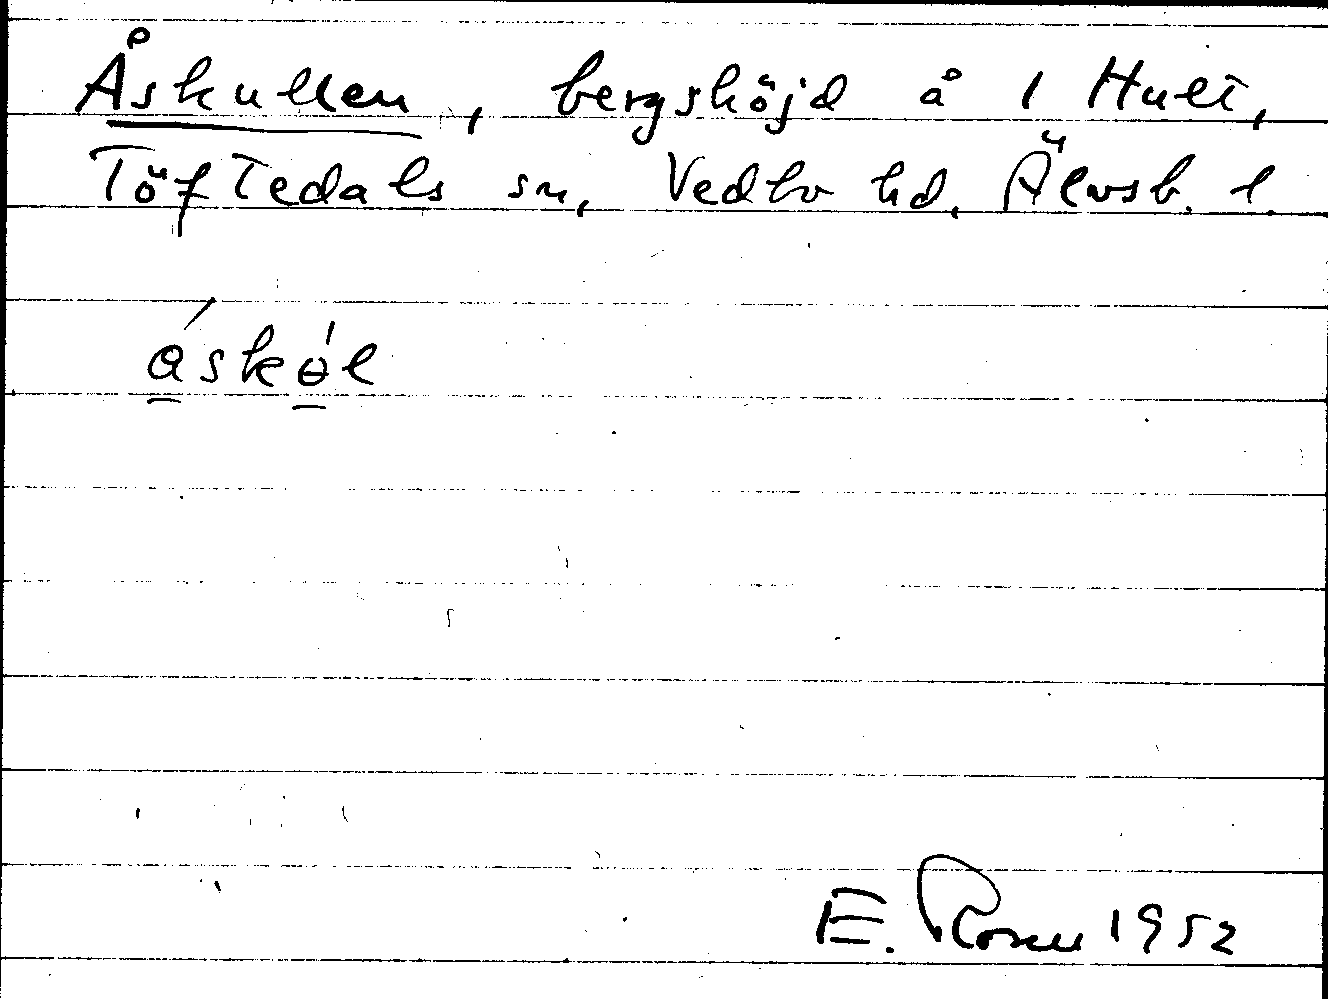 Åskullen, bergshöjd å 1 Hult,
Töftedals sn, Vedbo hd, Älvsb. l.
áskɵ́l
E. Rosen 1952